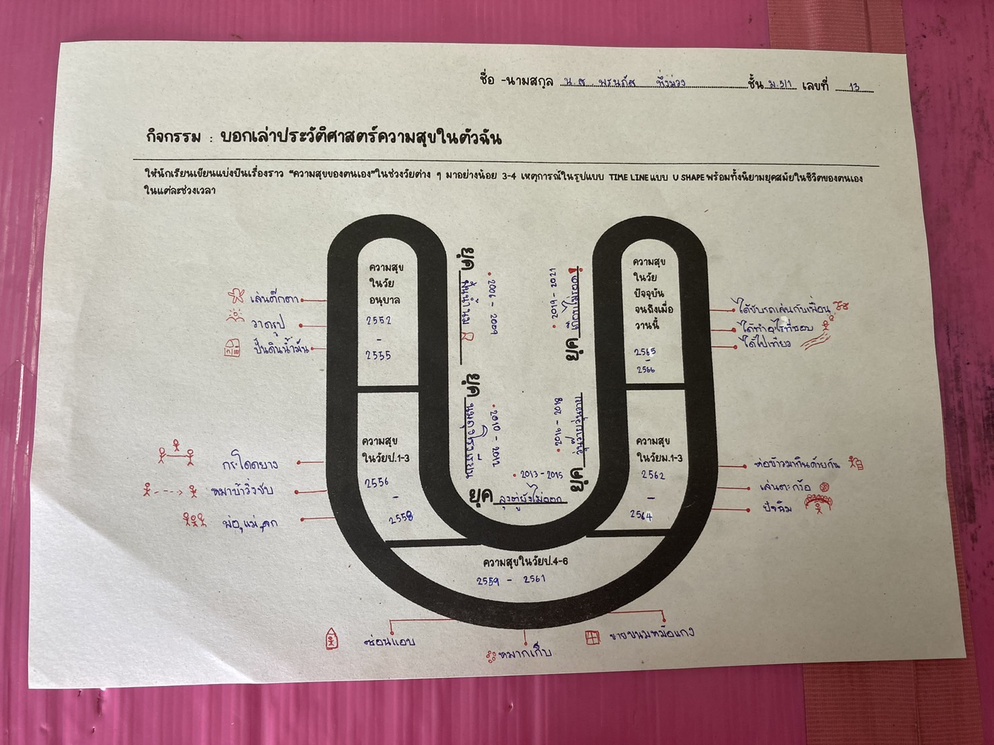 ชื่อ -นามสกุล น.ส. ชั้น ม.5/1 เลขที่ 13
กิจกรรม : บอกเล่าประวัติศาสตร์ความสุขในตัวฉัน
ให้นักเรียนเขียนแบ่งปันเรื่องราว "ความสุขของตนเอง"ในช่วงวัยต่าง ๆ มาอย่างน้อย 3-4 เหตุการณ์ในรูปแบบ TIME LINE แบบ U SHAPE พร้อมทั้งนิยามยุคสมัยในชีวิตของตนเอง
ในแต่ละช่วงเวลา
ความสุข
ในวัย
อนุบาล
2552
-
2555
เล่นตุ๊กตา
วาดรูป
ปั้นดินน้ำมัน
ยุค
2006 - 2009
ความสุข
ในวัยป.1-3
2556
-
2558
กระโดดยาง
หมาบ้าวิ่งชับ
พ่อ,แม่,ลูก
ยุค
2010 - 2012
ความสุขในวัยป.4-6
2559 - 2561
ซ่อนแอบ
หมากเก็บ
ขายขนมหม้อแกง
2013 - 2015
ยุค ลุงตู่ยังไม่ออก
ความสุข
ในวัยม.1-3
2562
-
2564
ห่อข้าวมากินด้วยกัน
เล่นตะกร้อ
ปิ้งส้ม
ยุค
2016 - 2018
ความสุข
ในวัย
ปัจจุบัน
จนถึงเมื่อ
วานนี้
2565
-
2566
ได้ขับรถเล่นกับเพื่อน
ได้ทำอะไรที่ชอบ
ได้ไปเที่ยว
ยุค
2019 - 2021